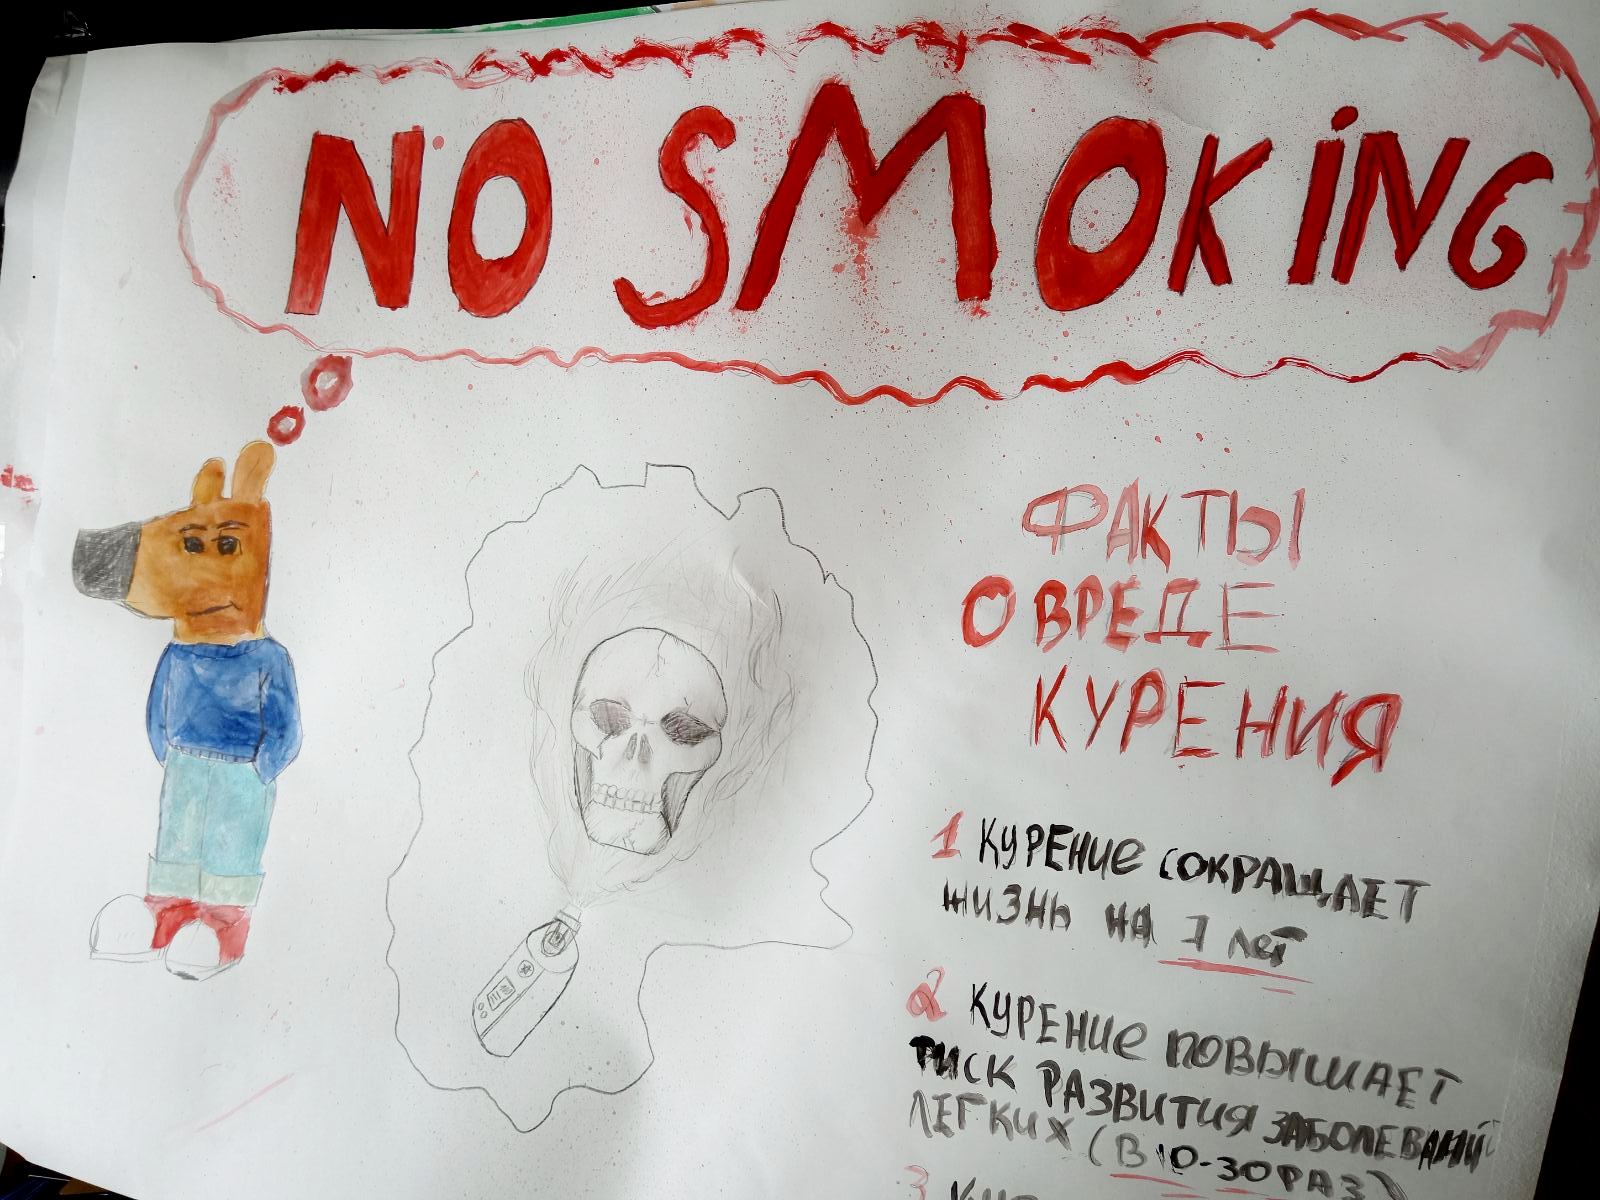 NO SMOKiNG
ФАКТЫ
О ВРЕДЕ
КУРЕНИЯ
1 КУРЕНИЕ СОКРАЩАЕТ
ЖИЗНЬ НА 7 лет
2 КУРЕНИЕ ПОВЫШАЕТ
ТИСК РАЗВИТИЯ ЗАБОЛЕВАНИЙ
ЛЕГКИХ (В 10-30 РАЗ)
3